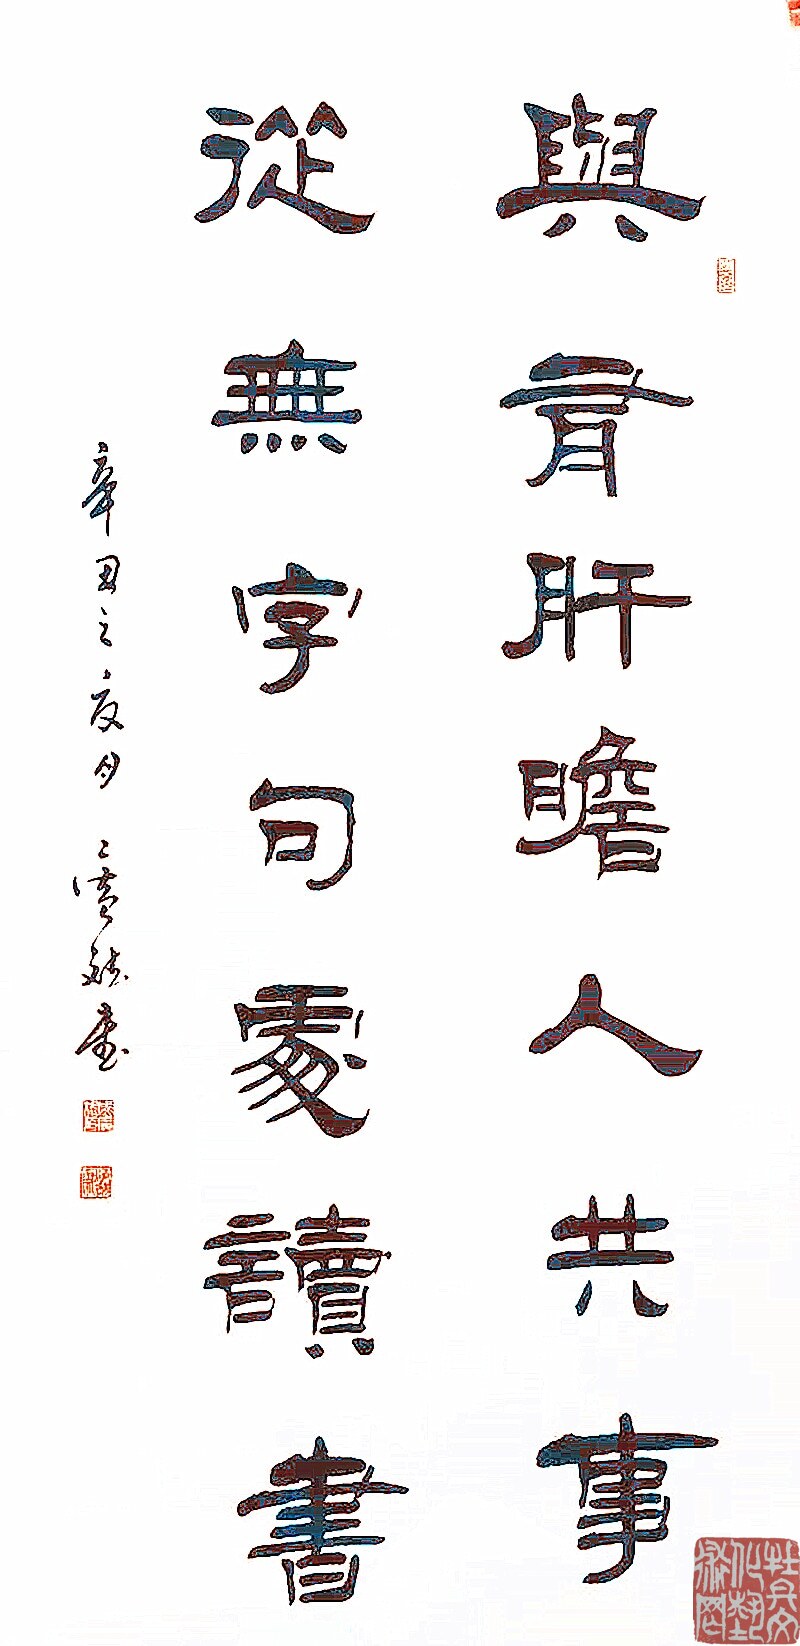 與肯肝膽人共事
從無字句處讀書
辛丑之夜月